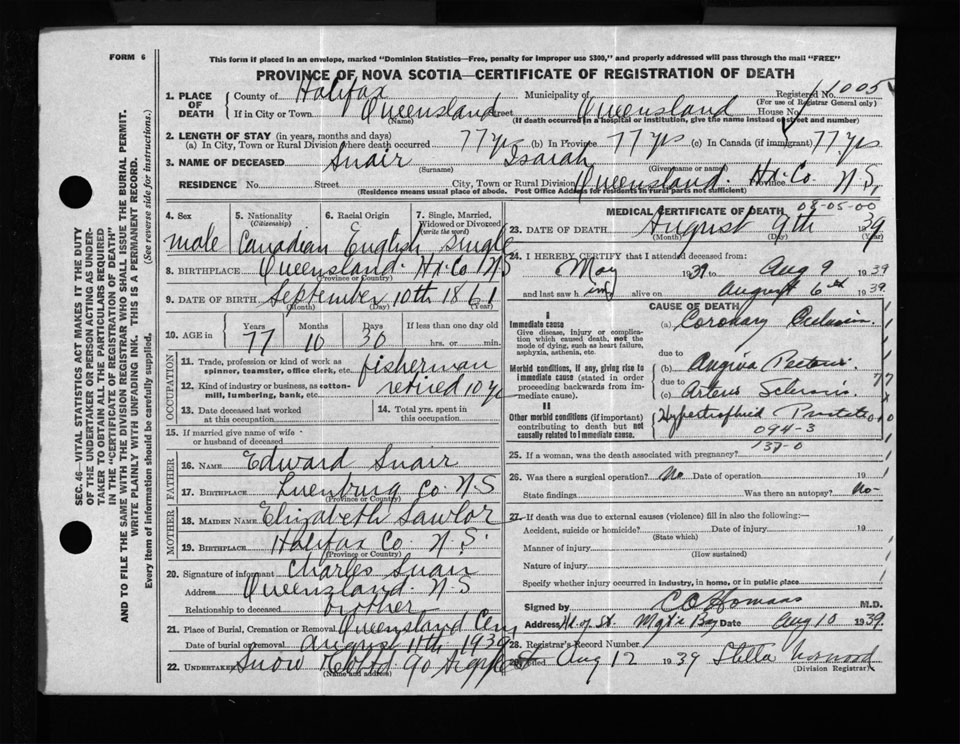 FORM 6
This form if placed in an envelope, marked "Dominion Statistics—Free, penalty for improper use $300," and properly addressed will pass through the mail "FREE"
PROVINCE OF NOVA SCOTIA—CERTIFICATE OF REGISTRATION OF DEATH
SEC. 46—VITAL STATISTICS ACT MAKES IT THE DUTY
OF THE UNDERTAKER OR PERSON ACTING AS UNDER-
TAKER TO OBTAIN ALL THE PARTICULARS REQUIRED
IN THE "CERTIFICATE OF REGISTRATION OF DEATH"
AND TO FILE THE SAME WITH THE DIVISION REGISTRAR WHO SHALL ISSUE THE BURIAL PERMIT.
WRITE PLAINLY WITH UNFADING INK. THIS IS A PERMANENT RECORD.
Every item of information should be carefully supplied. (See reverse side for instructions.)
1. PLACE OF DEATH County of Halifax Municipality of Registered No. 1005
(For use of Registrar General only)
If in City or Town Queensland Street Queensland House No.
(Name) (If death occurred in a hospital or institution, give the name instead of street and number)
2. LENGTH OF STAY (in years, months and days)
(a) In City, Town or Rural Division where death occurred 77 yrs (b) In Province 77 yrs (c) In Canada (if immigrant) 77 yrs
3. NAME OF DECEASED Snair Isaiah
(Surname) (Given name or name)
RESIDENCE No. Street City, Town or Rural Division Queensland. Hx. Co. Province N.S.
(Residence means usual place of abode. Post Office Address for residents in rural parts not sufficient)
4. Sex 5. Nationality (Citizenship) 6. Racial Origin 7. Single, Married, Widowed or Divorced (write the word)
male Canadian English single
8. BIRTHPLACE Queensland. Hx. Co N S
(Province or Country)
9. DATE OF BIRTH September 10th 1861
(Month) (Day) (Year)
10. AGE in Years Months Days If less than one day old
77 10 30 hrs. or min.
OCCUPATION
11. Trade, profession or kind of work as spinner, teamster, office clerk, etc. fisherman
12. Kind of industry or business, as cotton-mill, lumbering, bank, etc. retired 10 y
13. Date deceased last worked at this occupation 14. Total yrs. spent in this occupation
15. If married give name of wife or husband of deceased
FATHER
16. NAME Edward Snair
17. BIRTHPLACE Luenburg Co. N S
(Province or Country)
MOTHER
18. MAIDEN NAME Elizabeth Lawlor
19. BIRTHPLACE Halifax Co. N.S.
(Province or Country)
20. Signature of informant Charles Snair
Address Queensland. N S
Relationship to deceased brother
21. Place of Burial, Cremation or Removal Queensland Cem
Date of burial or removal August 11th 1939
22. UNDERTAKER Snow
(Name and address)
MEDICAL CERTIFICATE OF DEATH 03-05-00
23. DATE OF DEATH August 9th 1939
(Month) (Day) (Year)
24. I HEREBY CERTIFY that I attended deceased from:
May 1939 to Aug 9 1939
and last saw him alive on August 6th 1939
CAUSE OF DEATH
I
Immediate cause
Give disease, injury or complication which caused death, not the mode of dying, such as heart failure, asphyxia, asthenia, etc.
(a) Coronary
due to
Morbid conditions, if any, giving rise to immediate cause (stated in order proceeding backwards from immediate cause).
(b) Angina Pectoris
due to
(c) Arterio Sclerosis
II
Other morbid conditions (if important) contributing to death but not causally related to immediate cause.
Hypertrophied Prostate
094-3
137-0
25. If a woman, was the death associated with pregnancy?
26. Was there a surgical operation? No Date of operation 19
State findings Was there an autopsy? No
27. If death was due to external causes (violence) fill in also the following:—
Accident, suicide or homicide? Date of injury 19
(State which)
Manner of injury
(How sustained)
Nature of injury
Specify whether injury occurred in industry, in home, or in public place
Signed by M.D.
Address Hd. of St. Mgt's Bay Date Aug 10 1939
28. Registrar's Record Number
Filed Aug 12 1939 Stella
(Division Registrar)